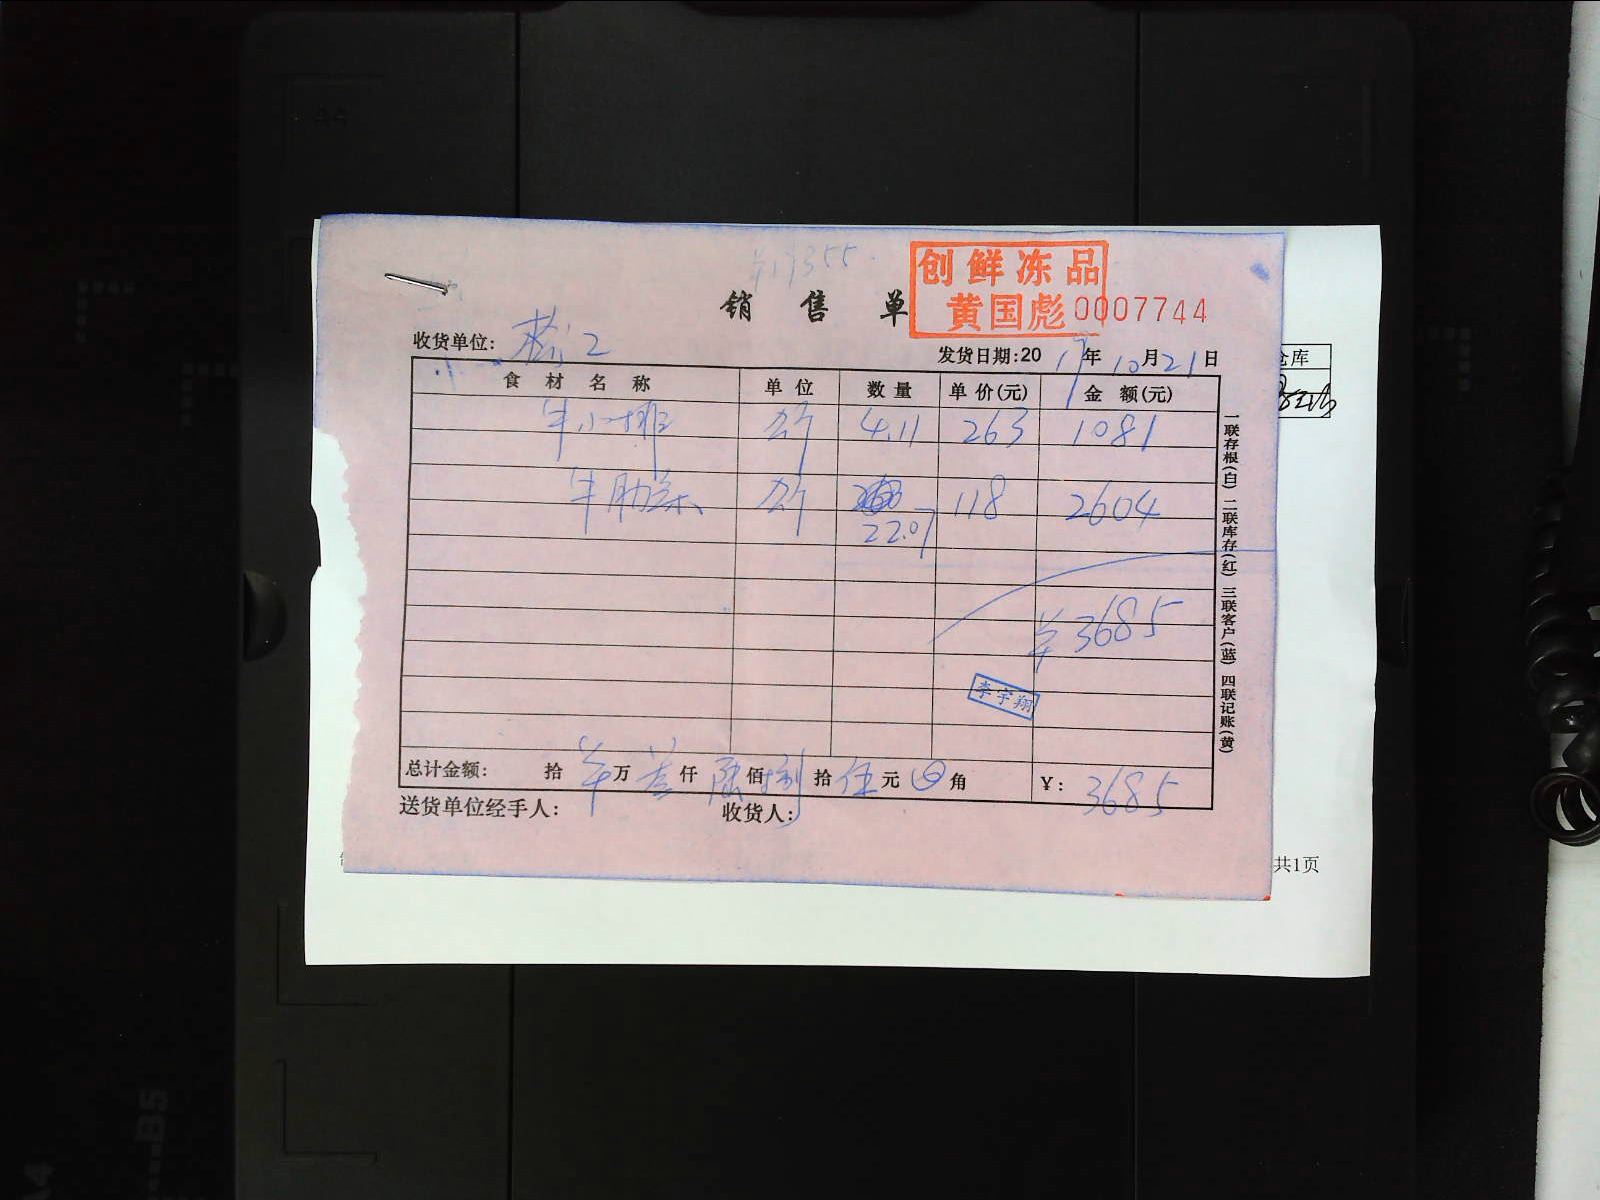 ¥19355
创鲜冻品
黄国彪
销售单
0007744
收货单位: 2
发货日期:2019年10月21日
仓库
食材名称 单位 数量 单价(元) 金额(元)
牛小排 斤 4.11 263 1081
牛肋条 斤 22.07 118 2604
¥3685
李宇翔
总计金额: 拾 万叁仟陆佰捌拾伍元 角 ¥: 3685
送货单位经手人: 收货人:
一联存根(白) 二联库存(红) 三联客户(蓝) 四联记账(黄)
共1页
A4
B5